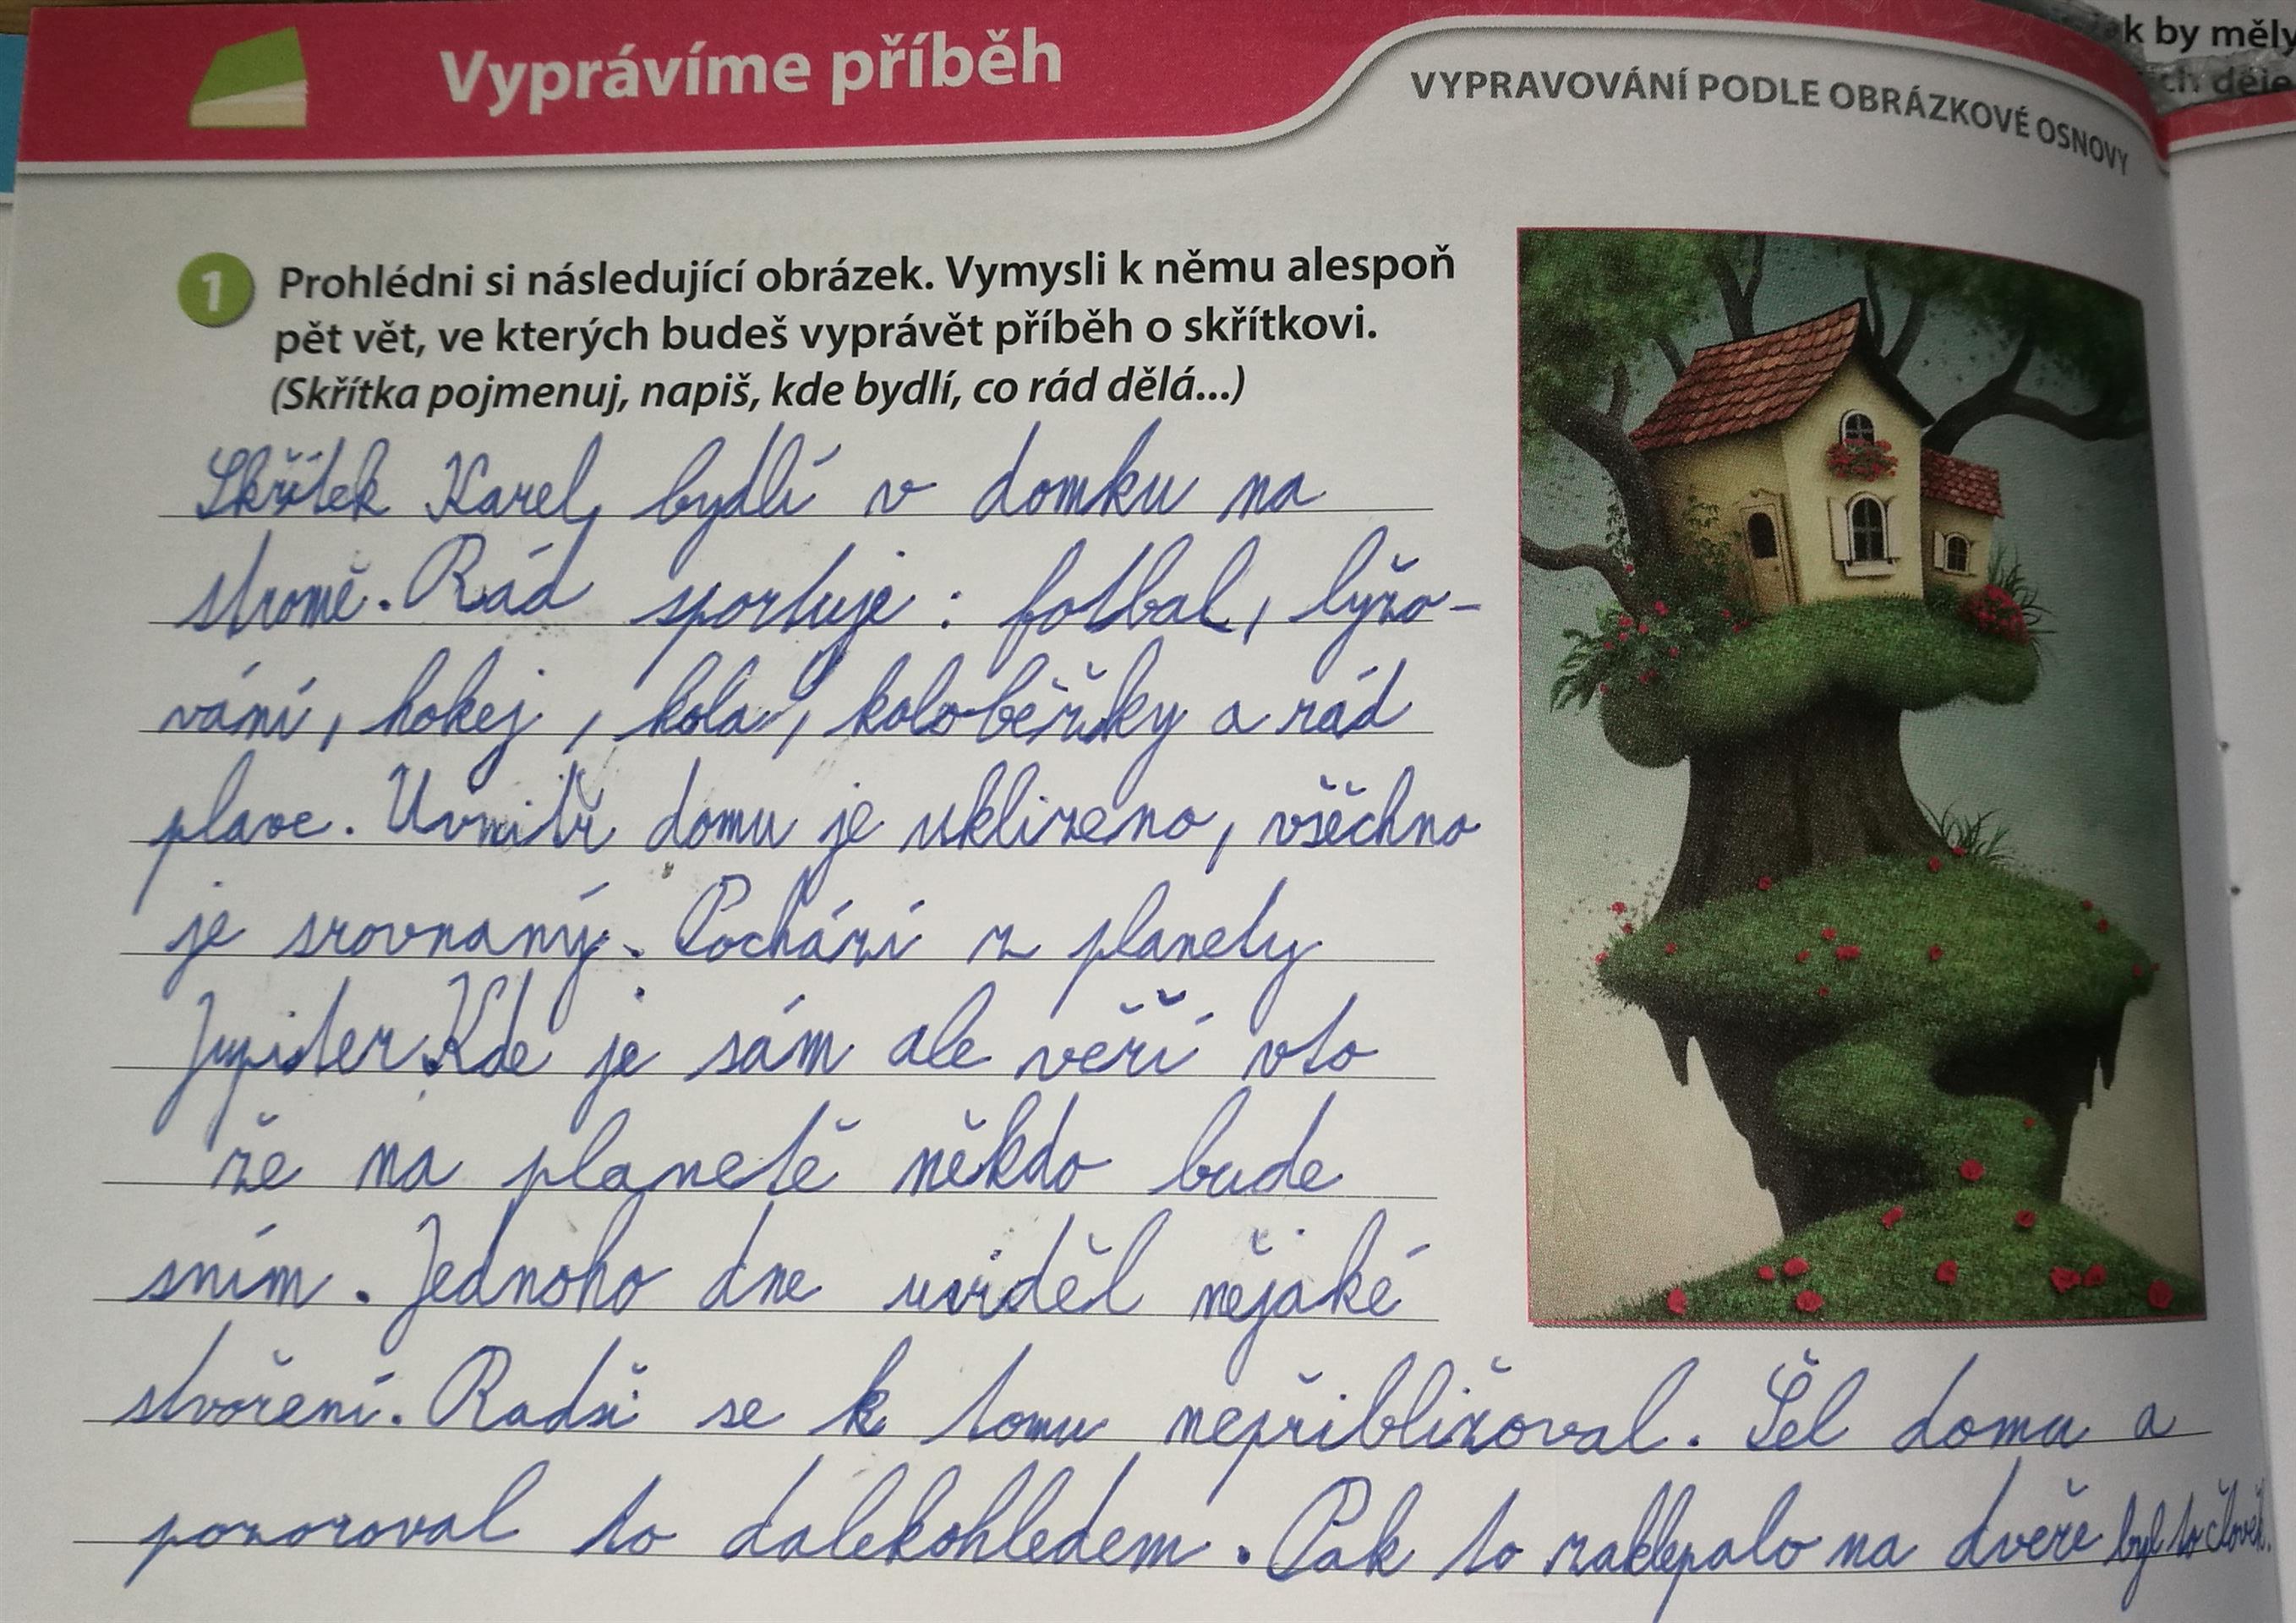 Vyprávíme příběh
VYPRAVOVÁNÍ PODLE OBRÁZKOVÉ OSNOVY
k by měly
ch děje
1 Prohlédni si následující obrázek. Vymysli k němu alespoň
pět vět, ve kterých budeš vyprávět příběh o skřítkovi.
(Skřítka pojmenuj, napiš, kde bydlí, co rád dělá...)
Skřítek Karel, bydlí v domku na
stromě. Rád sportuje : fotbal, lyžo-
vání, hokej, kola, koloběžky a rád
plave. Uvnitř domu je uklizeno, všěchno
je srovnaný. Pochází z planety
Jupiter. Kde je sám ale věří vto
že na planetě někdo bude
sním. Jednoho dne uviděl nějaké
stvoření. Radši se k tomu nepřibližoval. Šel domu a
pozoroval to dalekohledem. Pak to zaklepalo na dveře byl to člověk.